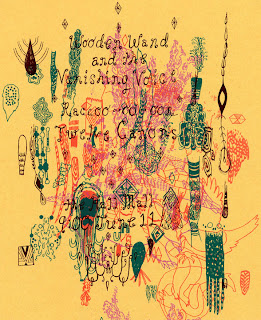 Wooden Wand
and the
Vanishing Voice
Raccoo-oo-oon
Twelve Canons
Mall
9:00 June 11